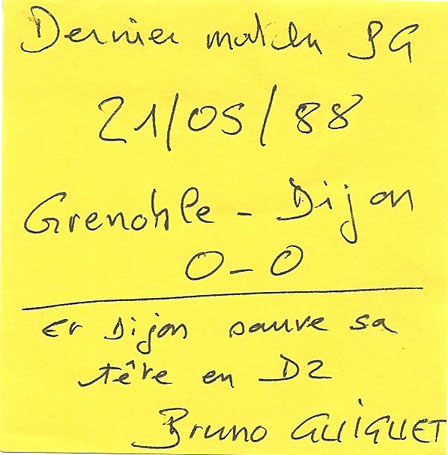 Dernier match SG
21/05/88
Grenoble - Dijon
0-0
Et Dijon sauve sa
tête en D2
Bruno GUIGUET